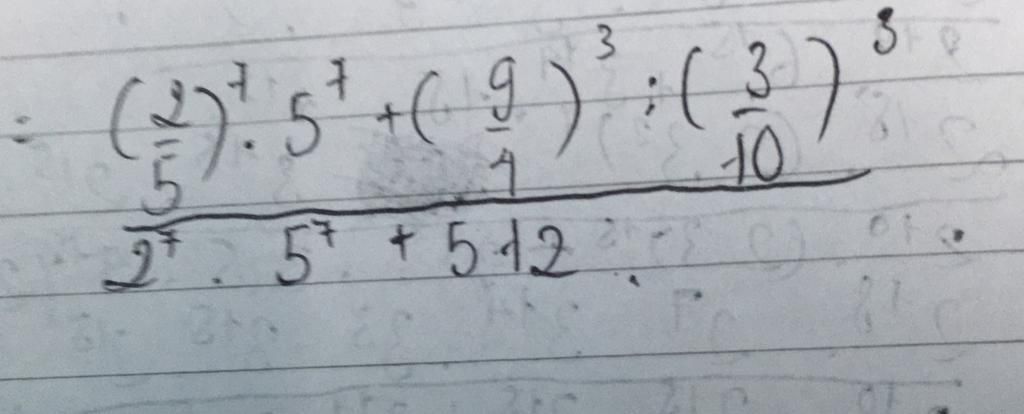 = (2/5)^7 . 5^7 + (9/4)^3 : (3/10)^3
2^7 . 5^7 + 512